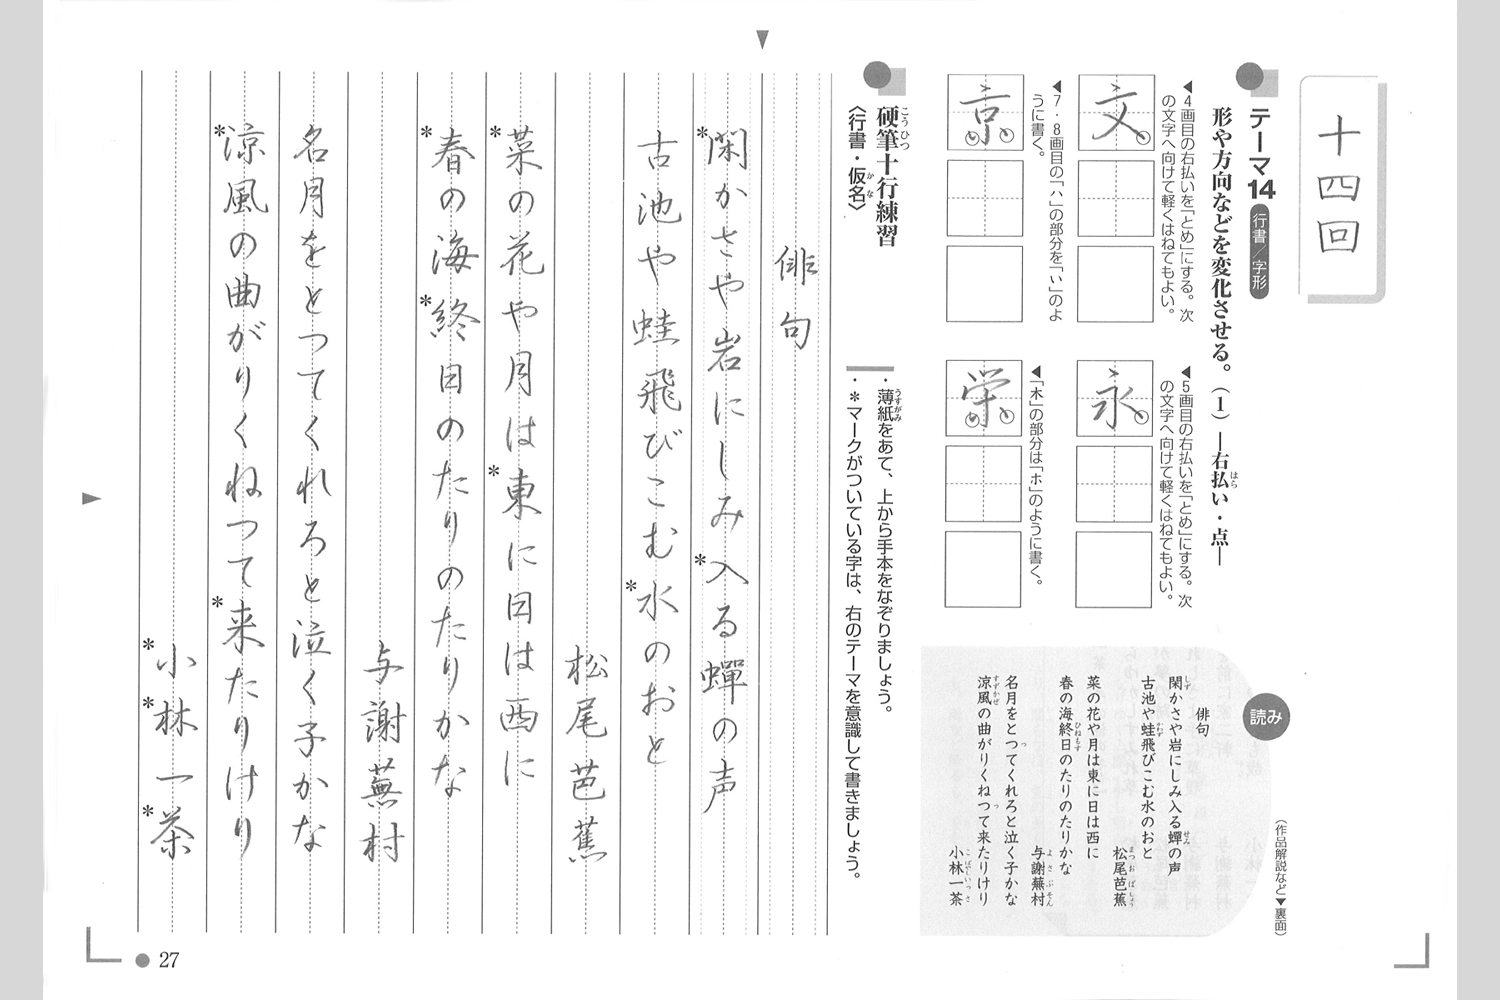 十四回
テーマ14 行書／字形
形や方向などを変化させる。（1）―右払い・点―
はら
◀4画目の右払いを「とめ」にする。次
の文字へ向けて軽くはねてもよい。
文
◀5画目の右払いを「とめ」にする。次
の文字へ向けて軽くはねてもよい。
永
◀7・8画目の「ハ」の部分を「い」のよ
うに書く。
京
◀「木」の部分は「ホ」のように書く。
栄
読み
（作品解説など▼裏面）
俳句
閑かさや岩にしみ入る蟬の声
しず
せみ
古池や蛙飛びこむ水のおと
かわず
松尾芭蕉
まつおばしょう
菜の花や月は東に日は西に
春の海終日のたりのたりかな
ひねもす
与謝蕪村
よさぶそん
名月をとつてくれろと泣く子かな
っ
涼風の曲がりくねつて来たりけり
すずかぜ
っ
小林一茶
こばやしいっさ
硬筆十行練習
こうひつ
〈行書・仮名〉
かな
・薄紙をあて、上から手本をなぞりましょう。
うすがみ
・＊マークがついている字は、右のテーマを意識して書きましょう。
俳句
＊閑かさや岩にしみ＊入る蟬の声
古池や蛙飛びこむ＊水のおと
松尾芭蕉
＊菜の花や月は＊東に日は西に
＊春の海＊終日のたりのたりかな
与謝蕪村
名月をとつてくれろと泣く子かな
＊涼風の曲がりくねつて＊来たりけり
＊小＊林一＊茶
27